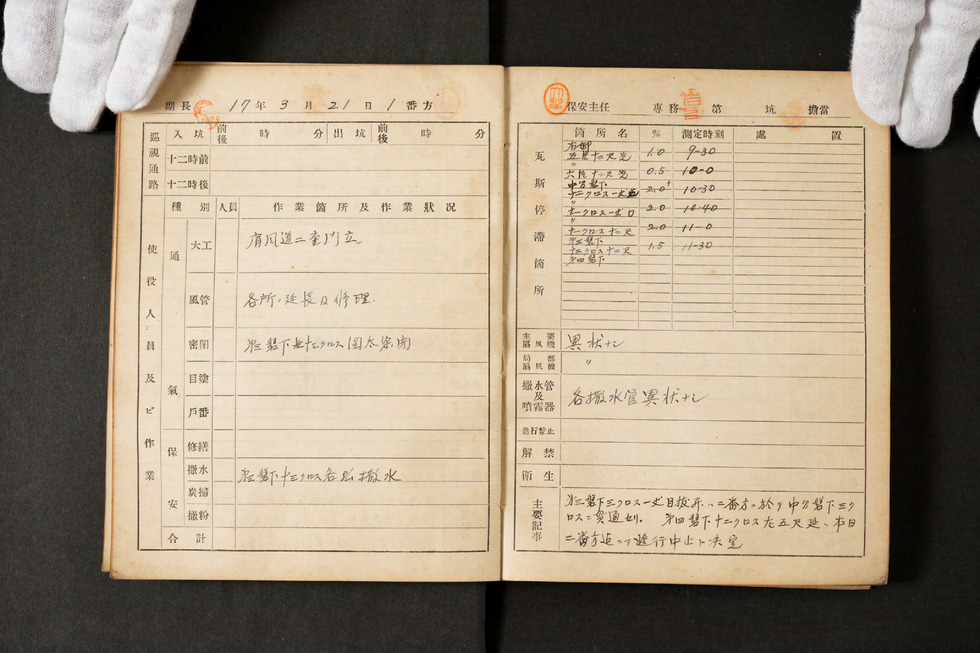 副長 17年3月21日1番方
巡視通路
入坑 前後 時 分 出坑 前後 時 分
十二時前
十二時後
使役人員及ビ作業
種別 人員 作業箇所及作業状況
通氣
大工 肩風道二重門立
風管 各所ノ延長及修理.
密閉
目塗
戸番
保安
修繕
撒水 第三盤下十三クロス各払撒水
炭掃
撒粉
合計
保安主任 専務 第 坑 擔當
瓦斯停滞箇所
箇所名 % 測定時刻 處置
右卸
五尺十二尺先 1.0 9-30
〃
六片十二尺先 0.5 10-0
2.0 10-30
2.0 10-40
〃
十一クロス十二尺 2.0 11-0
第三盤下
十三クロス十二尺 1.5 11-30
第四盤下
主要扇風機 異状ナシ
局部扇風機 〃
撒水管及噴霧器 各撒水管異状ナシ
進行禁止
解禁
衛生
主要記事
第三盤下三クロス一丈目抜昇ハ二番方ニ於テ中方盤下三ク
ロスニ貫通セリ. 第四盤下十二クロス左五尺延ハ本日
二番方迄ニテ進行中止ト決定